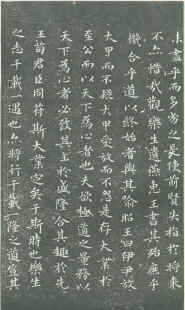 未盡乎而多劣之是使前賢失指於將來
不亦惜哉觀樂生遺燕惠王書其殆庶乎
機合乎道以終始者與其喻昭王曰伊尹放
大甲而不疑大甲受放而不怨是存大業於
至公而以天下為心者也夫欲極道之量務以
天下為心者必致其主於盛隆合其趣於先
王苟君臣同符斯大業定矣于斯時也樂生
之志千載一遇也亦將行千載一隆之道豈其